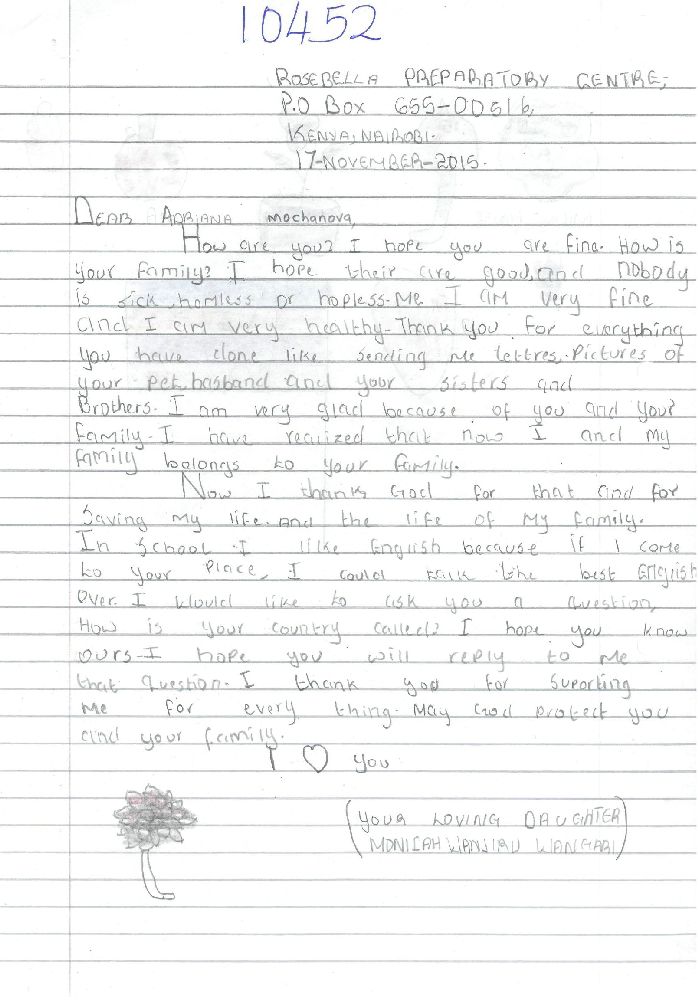 10452
ROSEBELLA PREPARATORY CENTRE,
P.O BOX 655-00516,
KENYA, NAIROBI.
17-NOVEMBER-2015.
DEAR ADRIANA mochanova,
How are you? I hope you are fine. How is
your family? I hope their are good, and nobody
is sick, homless or hopless. Me I am very fine
and I am very healthy. Thank you for everything
you have done like sending me lettres, Pictures of
your pet, hasband and your sisters and
Brothers. I am very glad because of you and your
family. I have realized that now I and my
family belongs to your family.
Now I thanks God for that and for
Saving my life. And the life of my family.
In School I like English because if I come
to your place, I could talk the best English
Over. I would like to ask you a question,
How is your country called? I hope you know
ours. I hope you will reply to me
that question. I thank you for suporting
me for every thing. May God protect you
and your family.
I ♡ you
(YOUR LOVING DAUGHTER
MONICAH WANJIRU WANGARI)